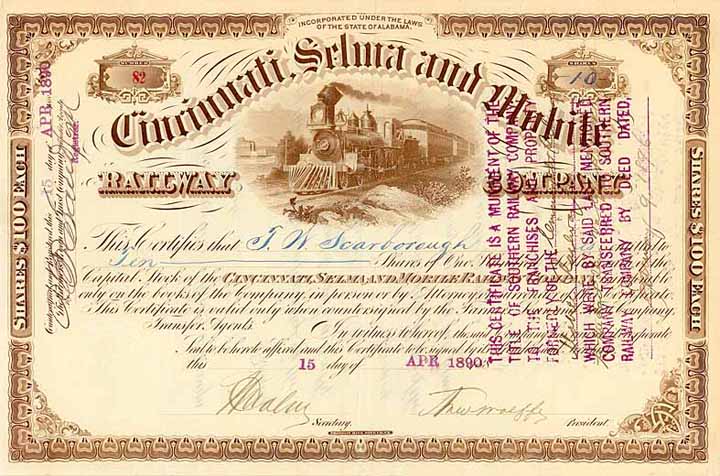 INCORPORATED UNDER THE LAWS
OF THE STATE OF ALABAMA.
NUMBER
82
SHARES
10
Cincinnati, Selma and Mobile
RAILWAY COMPANY
This Certifies that T. W. Scarborough
Ten Shares of One
Capital Stock of the CINCINNATI, SELMA AND MOBILE RAIL
only on the books of the Company, in person or by Attorney
This Certificate is valid only when countersigned by the Farmers Company
Transfer Agents. In witness whereof, the said
Seal to be hereto affixed and this Certificate to be signed by
this 15 day of APR 1890
Secretary. President
SHARES $100 EACH
SHARES $100 EACH
15 day of APR 1890
Registrar.
THIS CERTIFICATE IS A MUNIMENT OF THE
TITLE OF SOUTHERN RAILWAY COMPANY
TO THE FRANCHISES AND PROPERTY
FORMERLY OF THE
WHICH WERE BY SAID LAST NAMED
COMPANY TRANSFERRED TO SOUTHERN
RAILWAY COMPANY BY DEED DATED,